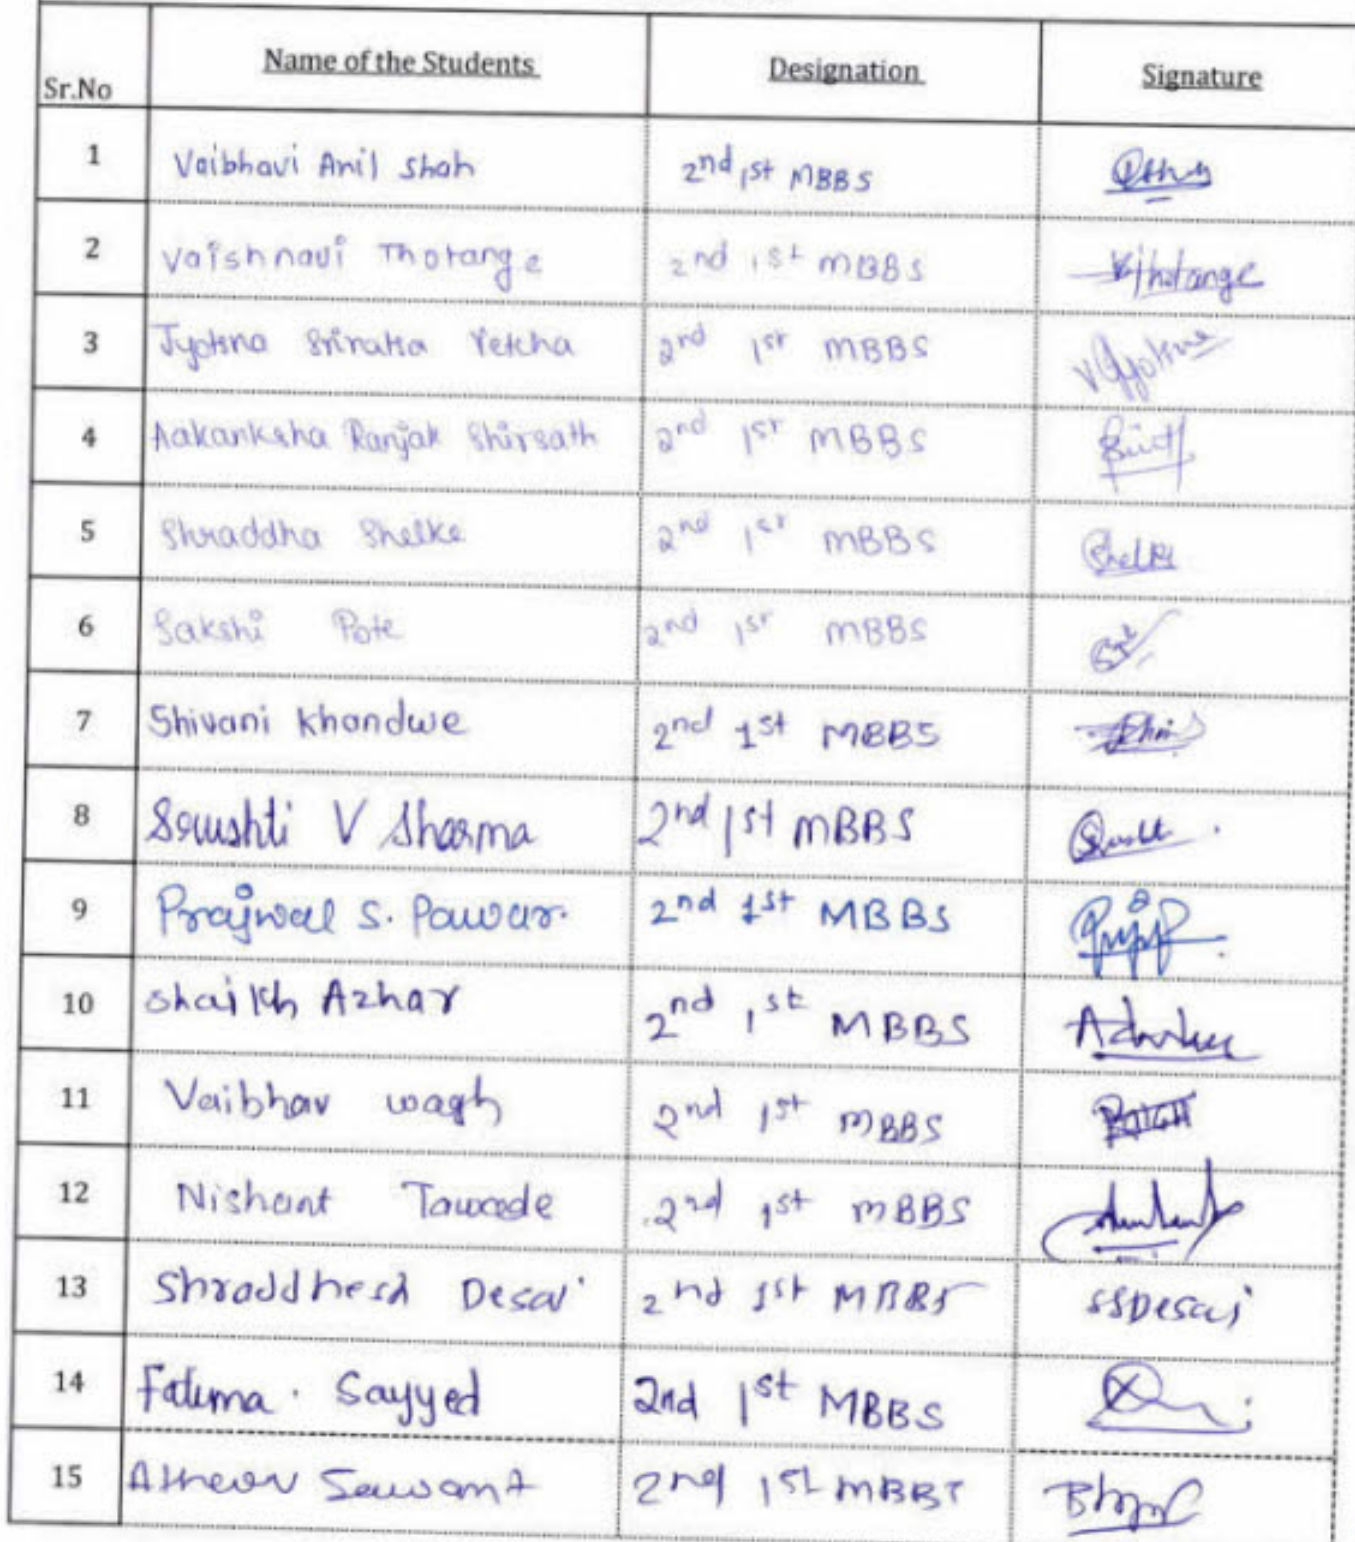 Sr.No Name of the Students Designation Signature
1 Vaibhavi Anil Shah 2nd 1st MBBS
2 Vaishnavi Thotange 2nd 1st MBBS Vthotange
3 Jyotsna Srinatsa Vetcha 2nd 1st MBBS V Jyotsna
4 Aakanksha Ranjak Shirsath 2nd 1st MBBS
5 Shraddha Shelke 2nd 1st MBBS Shelke
6 Sakshi Pote 2nd 1st MBBS
7 Shivani Khandwe 2nd 1st MBBS
8 Srushti V Sharma 2nd 1st MBBS
9 Prajwal S. Pawar. 2nd 1st MBBS
10 Shaikh Azhar 2nd 1st MBBS
11 Vaibhav wagh 2nd 1st MBBS
12 Nishant Tawade 2nd 1st MBBS
13 Shraddhesh Desai 2nd 1st MBBS SSDesai
14 Fatima . Sayyed 2nd 1st MBBS
15 Sawant 2nd 1st MBBS